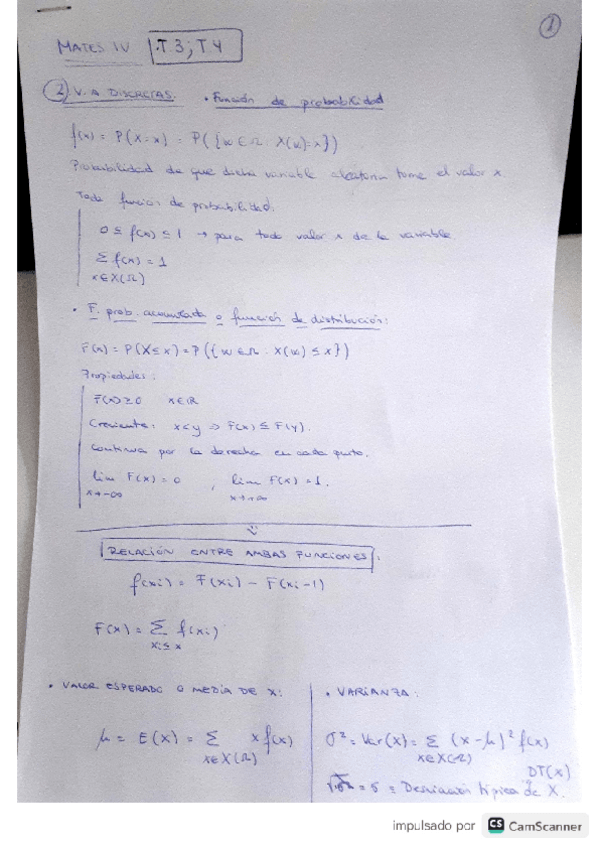 1
MATES IV T3; T4
2 V.A DISCRETAS: • Función de probabilidad
f(x) = P(X=x) = P({w ∈ Ω : X(w)=x})
Probabilidad de que dicha variable aleatoria tome el valor x.
Toda función de probabilidad:
0 ≤ f(x) ≤ 1 → para todo valor x de la variable
Σ f(x) = 1
x∈X(Ω)
• F. prob. acumulada o función de distribución:
F(x) = P(X≤x) = P({w ∈ Ω : X(w) ≤ x})
Propiedades:
F(x) ≥ 0 x∈R
Creciente: x<y ⇒ F(x) ≤ F(y).
Continua por la derecha en cada punto.
lim F(x) = 0 , lim F(x) = 1.
x→-∞ x→+∞
RELACIÓN ENTRE AMBAS FUNCIONES:
f(xi) = F(xi) - F(xi-1)
F(x) = Σ f(xi)
xi ≤ x
• VALOR ESPERADO O MEDIA DE X:
μ = E(X) = Σ x f(x)
x∈X(Ω)
• VARIANZA:
σ² = Var(X) = Σ (x-μ)² f(x)
x∈X(Ω)
DT(x)
√σ² = σ = Desviación típica de X.
impulsado por CS CamScanner